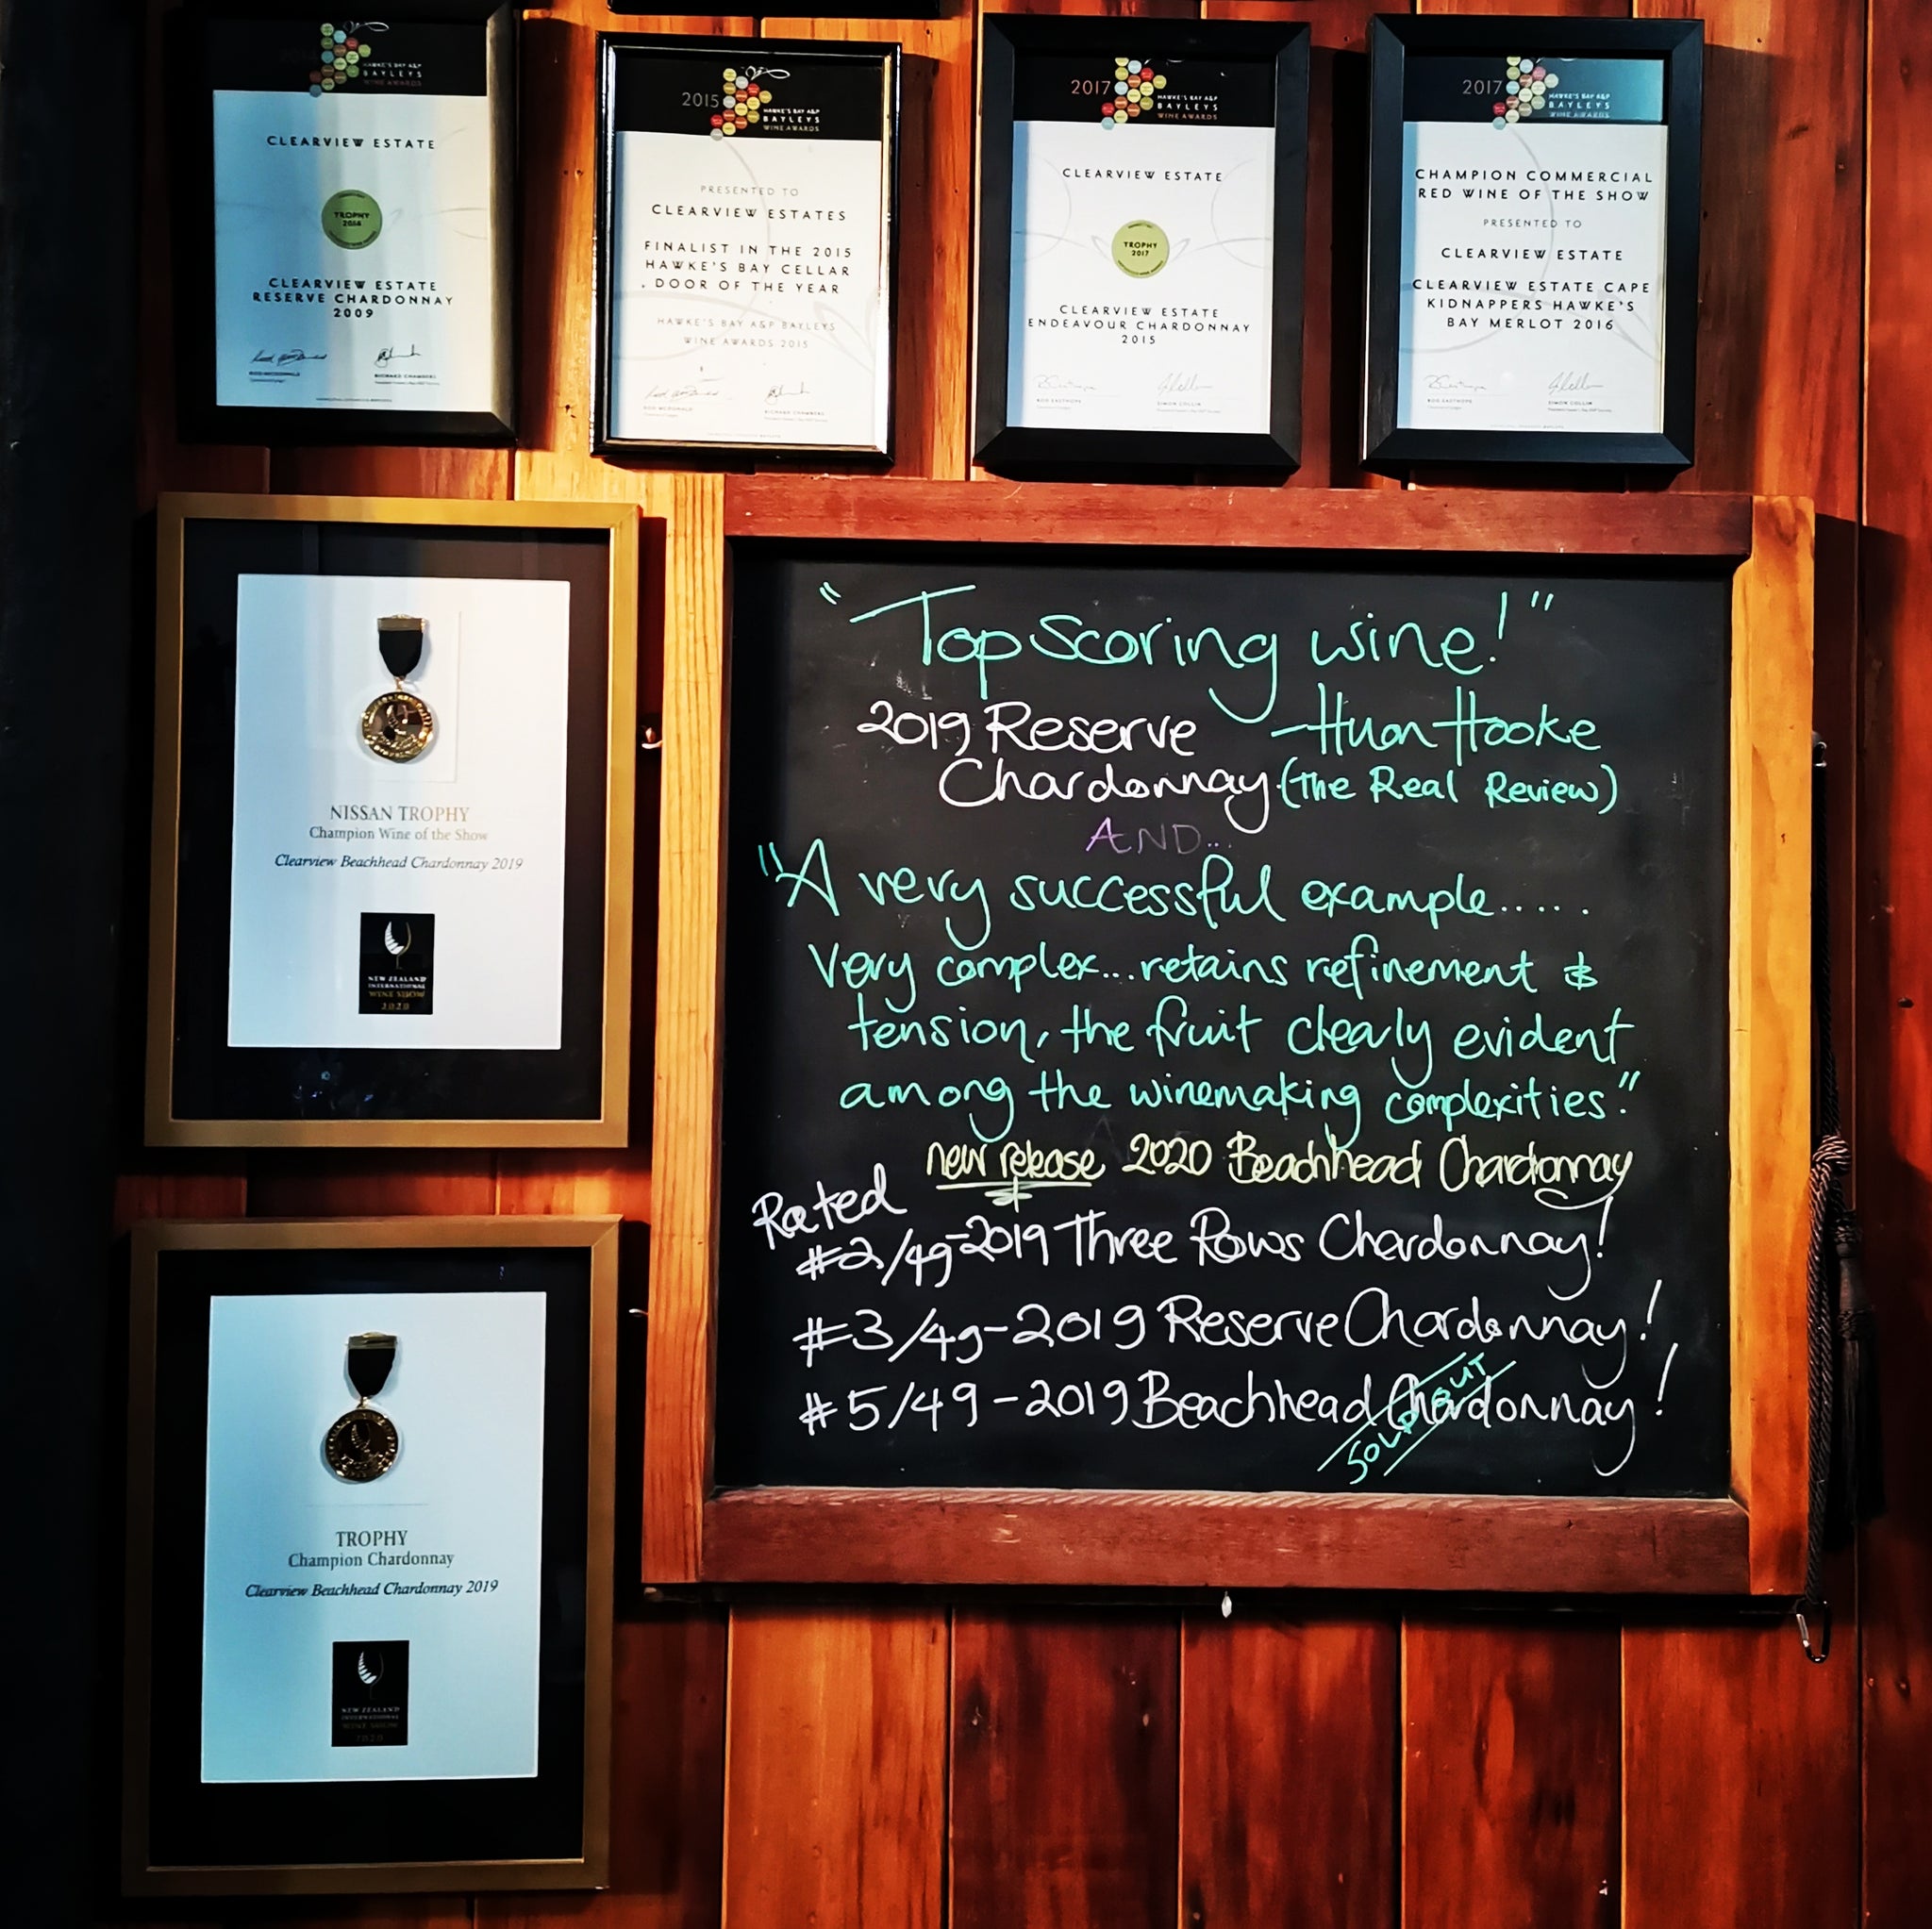 HAWKE'S BAY A&P
BAYLEYS
WINE AWARDS
CLEARVIEW ESTATE
TROPHY
CLEARVIEW ESTATE
RESERVE CHARDONNAY
2009
RICHARD CHAMBERS
2015
HAWKE'S BAY A&P
BAYLEYS
WINE AWARDS
PRESENTED TO
CLEARVIEW ESTATES
FINALIST IN THE 2015
HAWKE'S BAY CELLAR
DOOR OF THE YEAR
HAWKE'S BAY A&P BAYLEYS
WINE AWARDS 2015
ROD MCDONALD
RICHARD CHAMBERS
2017
HAWKE'S BAY A&P
BAYLEYS
WINE AWARDS
CLEARVIEW ESTATE
TROPHY
2017
CLEARVIEW ESTATE
ENDEAVOUR CHARDONNAY
2015
ROD EASTHOPE
SIMON COLLIN
2017
HAWKE'S BAY A&P
BAYLEYS
WINE AWARDS
CHAMPION COMMERCIAL
RED WINE OF THE SHOW
PRESENTED TO
CLEARVIEW ESTATE
CLEARVIEW ESTATE CAPE
KIDNAPPERS HAWKE'S
BAY MERLOT 2016
ROD EASTHOPE
SIMON COLLIN
NISSAN TROPHY
Champion Wine of the Show
Clearview Beachhead Chardonnay 2019
NEW ZEALAND
INTERNATIONAL
WINE SHOW
2020
TROPHY
Champion Chardonnay
Clearview Beachhead Chardonnay 2019
NEW ZEALAND
INTERNATIONAL
WINE SHOW
2020
"Top Scoring wine!"
2019 Reserve -Huon Hooke
Chardonnay (The Real Review)
AND...
"A very successful example.....
Very complex...retains refinement &
tension, the fruit clearly evident
among the winemaking complexities."
new release 2020 Beachhead Chardonnay
Rated
#2/49-2019 Three Rows Chardonnay!
#3/49-2019 Reserve Chardonnay!
#5/49-2019 Beachhead Chardonnay!
SOLD OUT